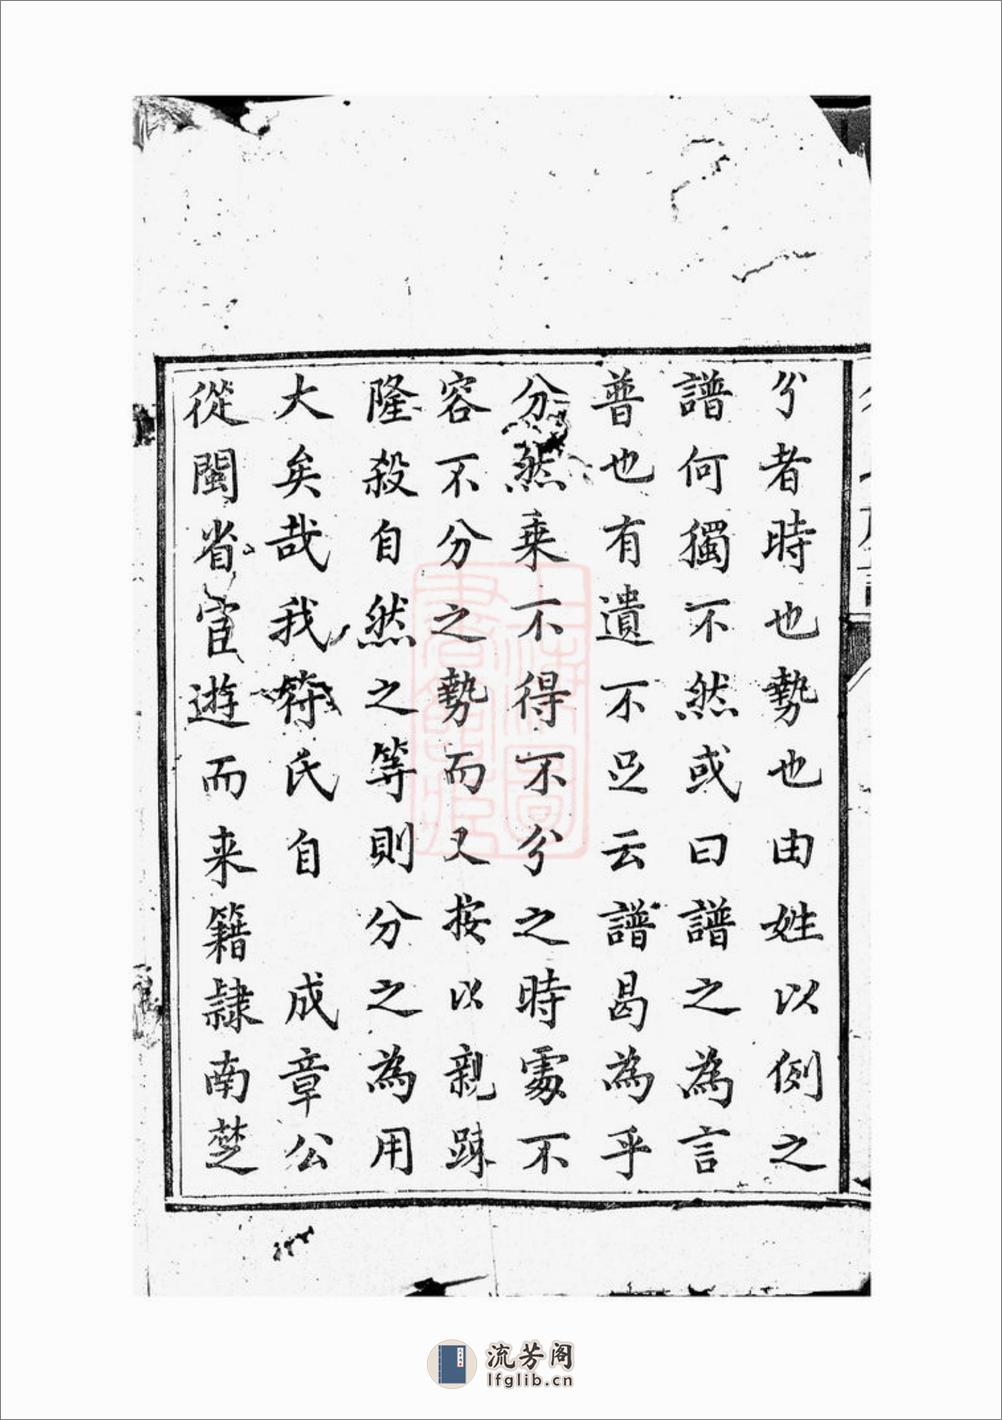 分者時也勢也由姓以例之
譜何獨不然或曰譜之為言
普也有遺不足云譜曷為乎
分然乗不得不分之時處不
容不分之勢而又按以親踈
隆殺自然之等則分之為用
大矣哉我符氏自 成章公
從閩省宦遊而来籍隷南楚
流芳阁
lfglib.cn